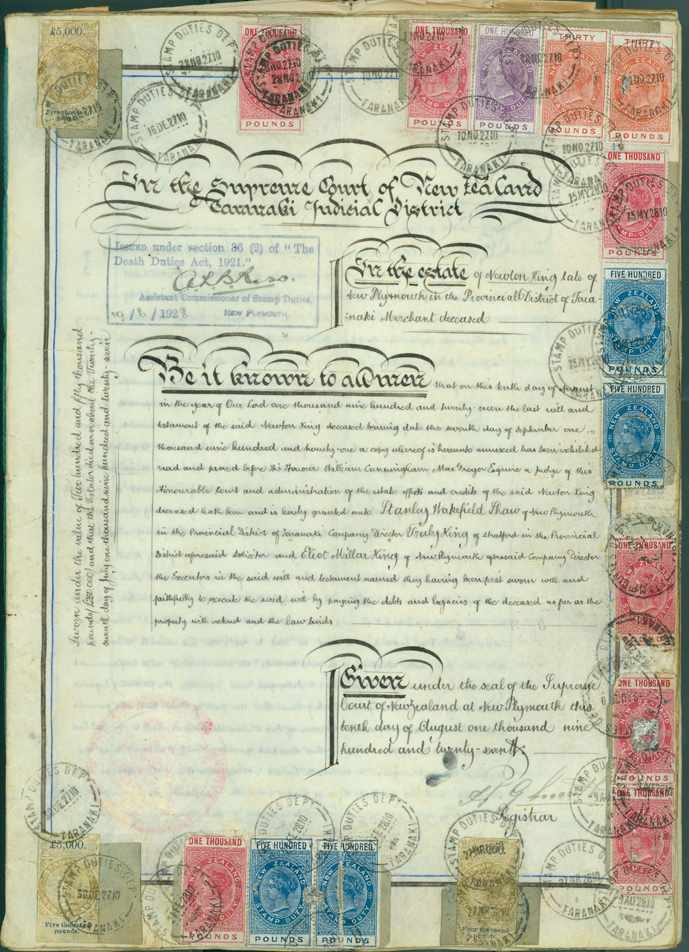 £5,000.
Five thousand pounds.
STAMP DUTIES DEPT
TARANAKI
28 NO 27 10
ONE THOUSAND
POUNDS
ONE THOUSAND
POUNDS
FIVE HUNDRED
POUNDS
THIRTY
POUNDS
THIRTY
POUNDS
STAMP DUTIES DEPT
16 DE 27 10
TARANAKI
10 NO 27 10
In the Supreme Court of New Zealand
Taranaki Judicial District
Issued under section 36 (2) of "The
Death Duties Act, 1921."
Assistant Commissioner of Stamp Duties,
NEW PLYMOUTH
In the estate of Newton King late of
New Plymouth in the Provincial District of Tara-
naki Merchant deceased
ONE THOUSAND
POUNDS
15 MY 28 10
FIVE HUNDRED
NEW ZEALAND
STAMP DUTY
POUNDS
FIVE HUNDRED
NEW ZEALAND
STAMP DUTY
Sworn under the value of Two hundred and fifty thousand
pounds and that the testator died on or about the Twenty-
seventh day of July one thousand nine hundred and twenty-seven
Be it known to all men that on this tenth day of August
in the year of Our Lord one thousand nine hundred and twenty-seven the last will and
testament of the said Newton King deceased bearing date the seventh day of September one
thousand nine hundred and twenty-one a copy whereof is hereunto annexed has been exhibited
read and proved before His Honour William Cunningham MacGregor Esquire a judge of this
Honourable Court and administration of the estate effects and credits of the said Newton King
deceased hath been and is hereby granted unto Stanley Wakefield Shaw of New Plymouth
in the Provincial District of Taranaki Company Director Truby King of Stratford in the Provincial
District aforesaid Solicitor and Eliot Millar King of New Plymouth aforesaid Company Director
the Executors in the said will and testament named they having been first sworn well and
faithfully to execute the said will by paying the debts and legacies of the deceased as far as the
property will extend and the law binds
ONE THOUSAND
ONE THOUSAND
POUNDS
ONE THOUSAND
POUNDS
Given under the seal of the Supreme
Court of New Zealand at New Plymouth this
tenth day of August one thousand nine
hundred and twenty-seven
Registrar
STAMP DUTIES DEPT
TARANAKI
£5,000.
Five thousand pounds.
ONE THOUSAND
POUNDS
FIVE HUNDRED
NEW ZEALAND
STAMP DUTY
POUNDS
FIVE HUNDRED
NEW ZEALAND
STAMP DUTY
POUNDS
STAMP DUTIES DEPT
TARANAKI
Four thousand pounds.
27 MR 28 10
TARANAKI